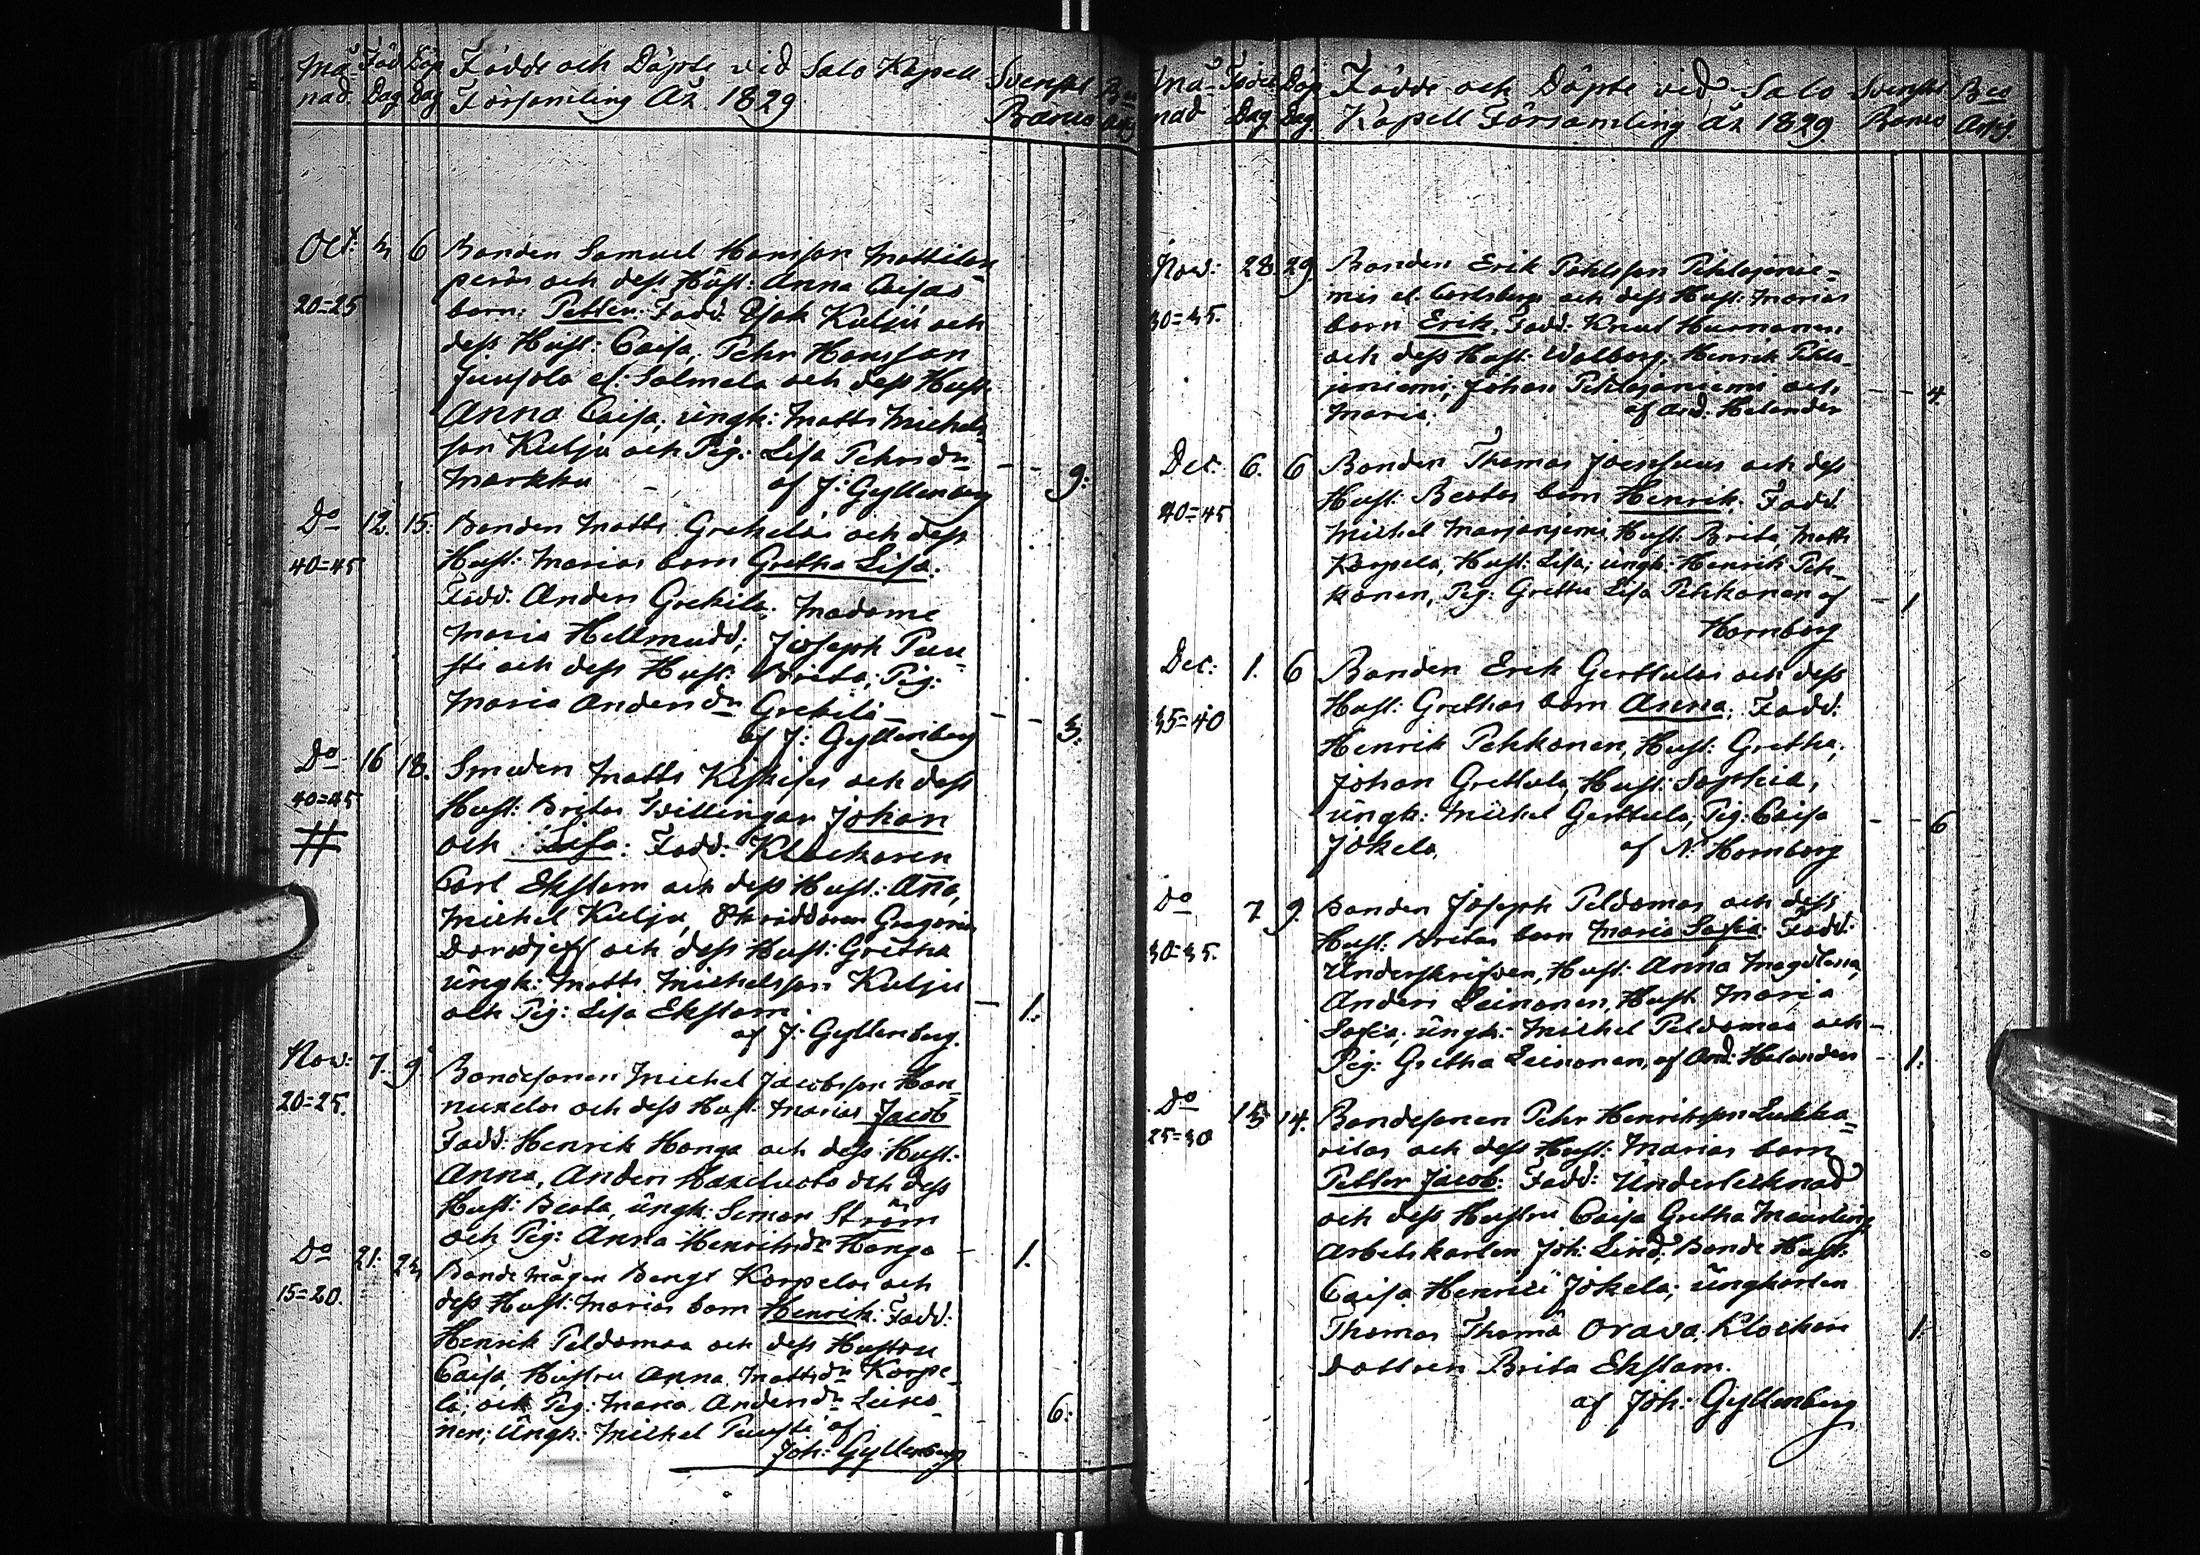 Må- Föd Döp Födde och Döpte vid Salo Kapell Svenske
nad. Dag Dag Församling År 1829 Banco
Oct: 3 6 Bonden Samuel Hansson Mattilan
perös och dess Hust: Anna Caisas
20=25 barn: Petter. Fadd: Isak Kulju och
dess Hust: Caisa, Pehr Hansson
Juusola el: Salmela och dess Hust:
Anna Caisa, ungk: Matts Michels
son Kulju och Pig: Lisa Pehrsdr
Markku af J: Gyllenberg - - 9:
Do 12. 15. Bonden Matts Grekelas och dess
40=45 Hust: Marias barn Gretha Lisa.
Fadd: Anders Grekila; Madame
Maria Hellmudd; Joseph Puu-
sti och dess Hust: Brita; Pig:
Maria Andersdr Grekilä
af J: Gyllenberg - - 3:
Do 16 18. Smeden Matts Kiskises och dess
40=45 Hust: Britas Tvillingar Johan
# och Lisa: Fadd: Klockaren
Carl Ekstam och dess Hust: Ana,
Michel Kulju, Gregorie
och dess Hust: Gretha
ungk: Matts Michelsson Kulju
och Pig: Lisa Ekstam. - 1:
af J: Gyllenberg.
Nov: 7. 9. Bondesonen Michel Jacobsson Han-
20=25. nukelas och dess Hust: Marias Jacob
Fadd: Henrik Honga och dess Hust:
Anna, Anders Haxeluoto och dess
Hust: Beata, ungk: Simon Ström
och Pig: Anna Henriksdr Honga - 1.
Do 21. 23 Bonde Mågen Bengt Korpelas och
15=20. dess Hust: Marias barn Henrik: Fadd:
Henrik Peldomaa och dess Hustru
Caisa Hustru Anna Mattsdr Korpe-
la; och Pig: Maria Andersdr Leino-
nen; Ungk: Michel Puusti af - 6:
Joh: Gyllenberg
Må- Födel Döp Födde och Döpte vid Salo Svenske
nad Dag Dag Kapell Församling År 1829. Banco
Nov: 28. 29. Bonden Erik Pahlsson Pehlajanie-
mis el. Carlsbergs och dess Hust: Marias
30=35. barn Erik. Fadd: Knut Hurnanen
och dess Hust: Walborg; Henrik Pehla-
janiemi; Johan Pehlajaniemi och - - 4.
Maria. af And: Helander
Dec: 6. 6 Bonden Thomas Joensuus och dess
Hust: Beatas barn Henrik. Fadd.
40=45 Michel Marjaniemi, Hust: Brita, Matts
Korpela, Hust: Lisa; ungk: Henrik Peh-
konen, Pig: Greta Lisa Pehkonen af - 1.
Hornborg
Dec: 1. 6 Bonden Erik Gerttulas och dess
35=40 Hust: Grethas barn Anna. Fadd:
Henrik Pehkonen, Hust: Gretha;
Johan Grettula, Hust: Sophia,
ungk: Michel Gerttula, Pig: Caisa - - 6
Jokela. af N: Hornborg
Do 7 9. Bonden Joseph Peldomas och dess
30=35. Hust: Britas barn Maria Sofia: Fadd:
Underskrifven, Hust: Anna Magdlena,
Anders Leinonen, Hust. Maria
Sofia; ungk: Michel Peldomaa och
Pig: Gretha Leinonen, af And: Helander - 1:
Do 13 14. Bondesonen Pehr Henriksson Lukka-
25=30 rilas och dess Hust: Marias barn
Petter Jacob. Fadd: Undertecknad
och dess Hustru Caisa Gretha
Arbetskarlen Joh: Lind, Bonde Hust.
Caisa Henrici Jokela; ungkarlen
Thomas Thoma Orava, Klockare 1:
dottren Brita Ekstam.
af Joh: Gyllenberg